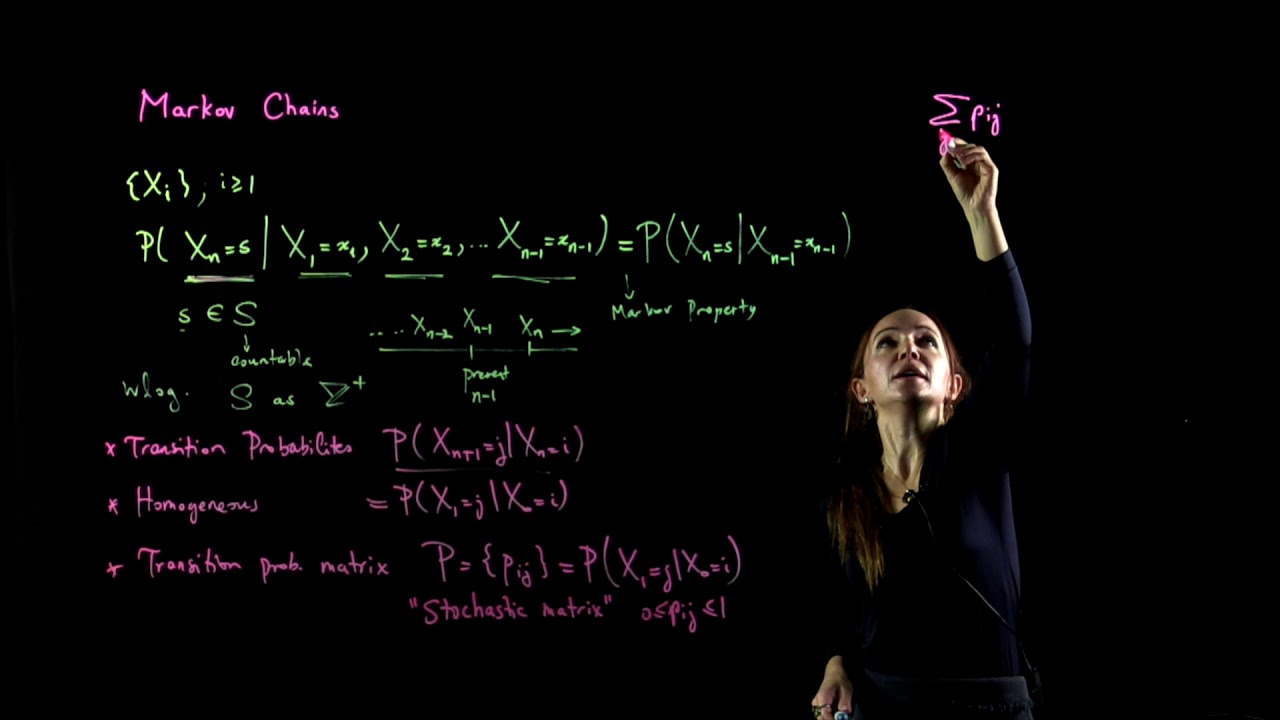 Markov Chains
{Xᵢ}, i≥1
P( Xₙ=s | X₁=x₁, X₂=x₂, ... Xₙ₋₁=xₙ₋₁) = P(Xₙ=s|Xₙ₋₁=xₙ₋₁)
↓
Markov Property
s ∈ S
↓
countable
..... Xₙ₋₂ Xₙ₋₁ Xₙ →
present
n-1
Wlog. S as ℤ⁺
* Transition Probabilites P(Xₙ₊₁=j|Xₙ=i)
* Homogeneous = P(X₁=j|X₀=i)
* Transition prob. matrix P={pᵢⱼ}=P(X₁=j|X₀=i)
"Stochastic matrix" 0≤pᵢⱼ≤1
∑ pᵢⱼ
j